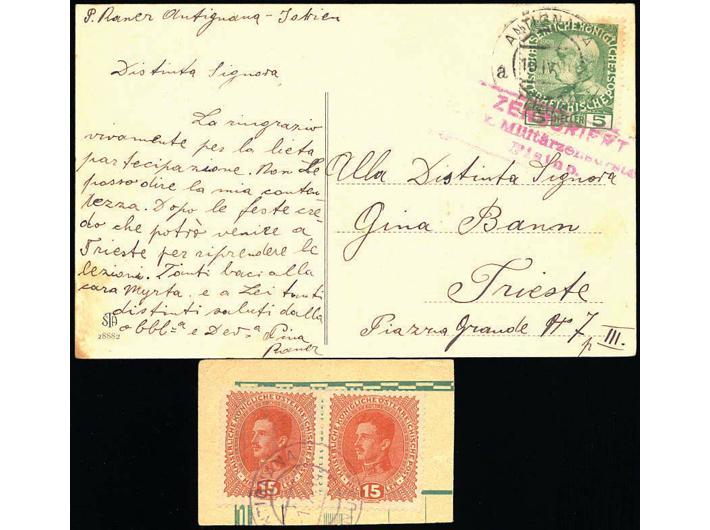 P. Raner Antignana - Istrien
Distinta Signora,
La ringrazio
vivamente per la lieta
partecipazione. Non Le
posso dire la mia conten-
tezza. Dopo le feste cre-
do che potrò venire a
Trieste per riprendere le
lezioni. Tanti baci alla
cara Myrta. e a Lei tanti
distinti saluti dalla
obbl-a e Dev.a Pina
Raner
STA
28882
ANTIGNANA
a
KAISERLICHE KÖNIGLICHE
ÖSTERREICHISCHE POST
5 HELLER 5
ZENSURIERT
k. Militärzensurstelle
Alla Distinta Signora
Gina Bann
Trieste
Piazza Grande No 7
p III.
KAISERLICHE KÖNIGLICHE ÖSTERREICHISCHE POST
15
KAISERLICHE KÖNIGLICHE ÖSTERREICHISCHE POST
15